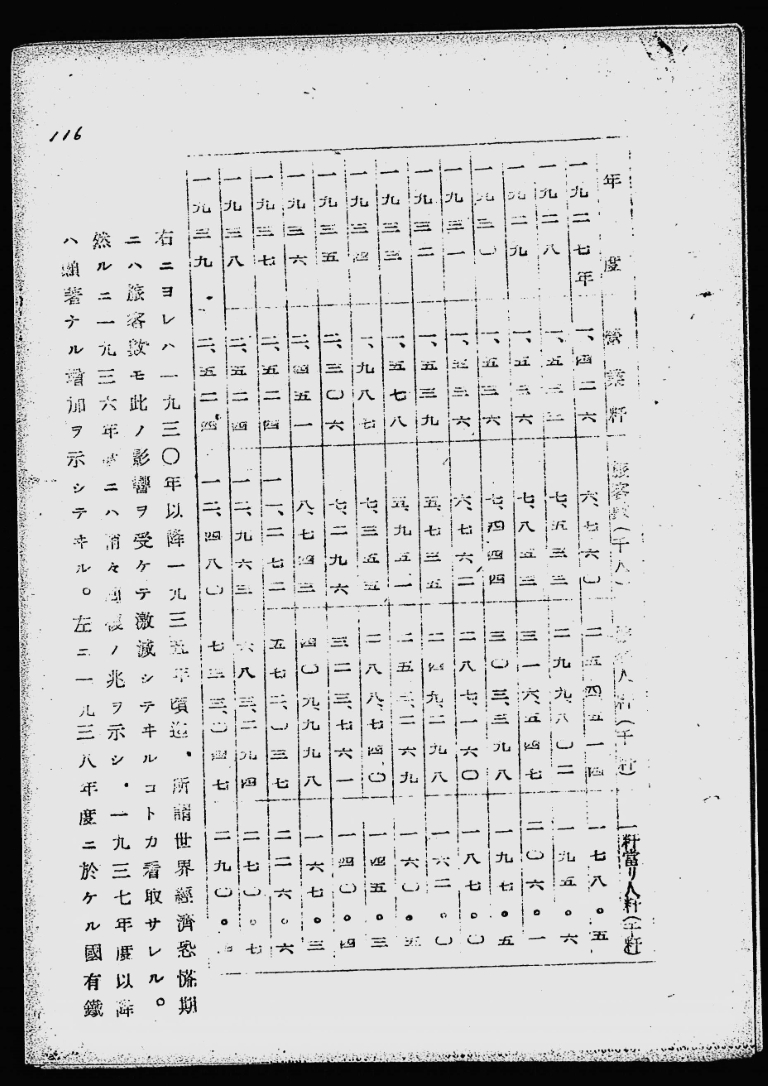 116
年度 營業粁 旅客数(千人) 旅客人粁(千粁) 一粁當リ人粁(千粁)
一九二七年 一、四二六 六、七六〇 二五四、五一四 一七八。五
一九二八 一、五三三 七、五三三 二九九、八〇二 一九五。六
一九二九 一、五三六 七、八五三 三一六、五四七 二〇六。一
一九三〇 一、五三六 七、四四四 三〇三、三九八 一九七。五
一九三一 一、五三六 六、七六二 二八七、一六〇 一八七。〇
一九三二 一、五三九 五、七三五 二四九、二九八 一六二。〇
一九三三 一、五七八 五、九五一 二五三、二六九 一六〇。五
一九三四 一、九八七 七、三五五 二八八、七四〇 一四五。三
一九三五 二、三〇六 七、二九六 三二三、七六一 一四〇。四
一九三六 二、四五一 八、七四三 四〇九、九九八 一六七。三
一九三七 二、五二四 一一、二七二 五七二、〇三七 二二六。六
一九三八 二、五二四 一二、九六三 六八三、二九四 二七〇。七
一九三九 二、五二四 一二、四八〇 七三三、〇四七 二九〇。
右ニヨレハ一九三〇年以降一九三五年頃迄、所謂世界經濟恐慌期
ニハ旅客数モ此ノ影響ヲ受ケテ激減シテヰルコトカ看取サレル。
然ルニ一九三六年ニハ漸々回復ノ兆ヲ示シ、一九三七年度以降
ハ顯著ナル增加ヲ示シテヰル。左ニ一九三八年度ニ於ケル國有鐵